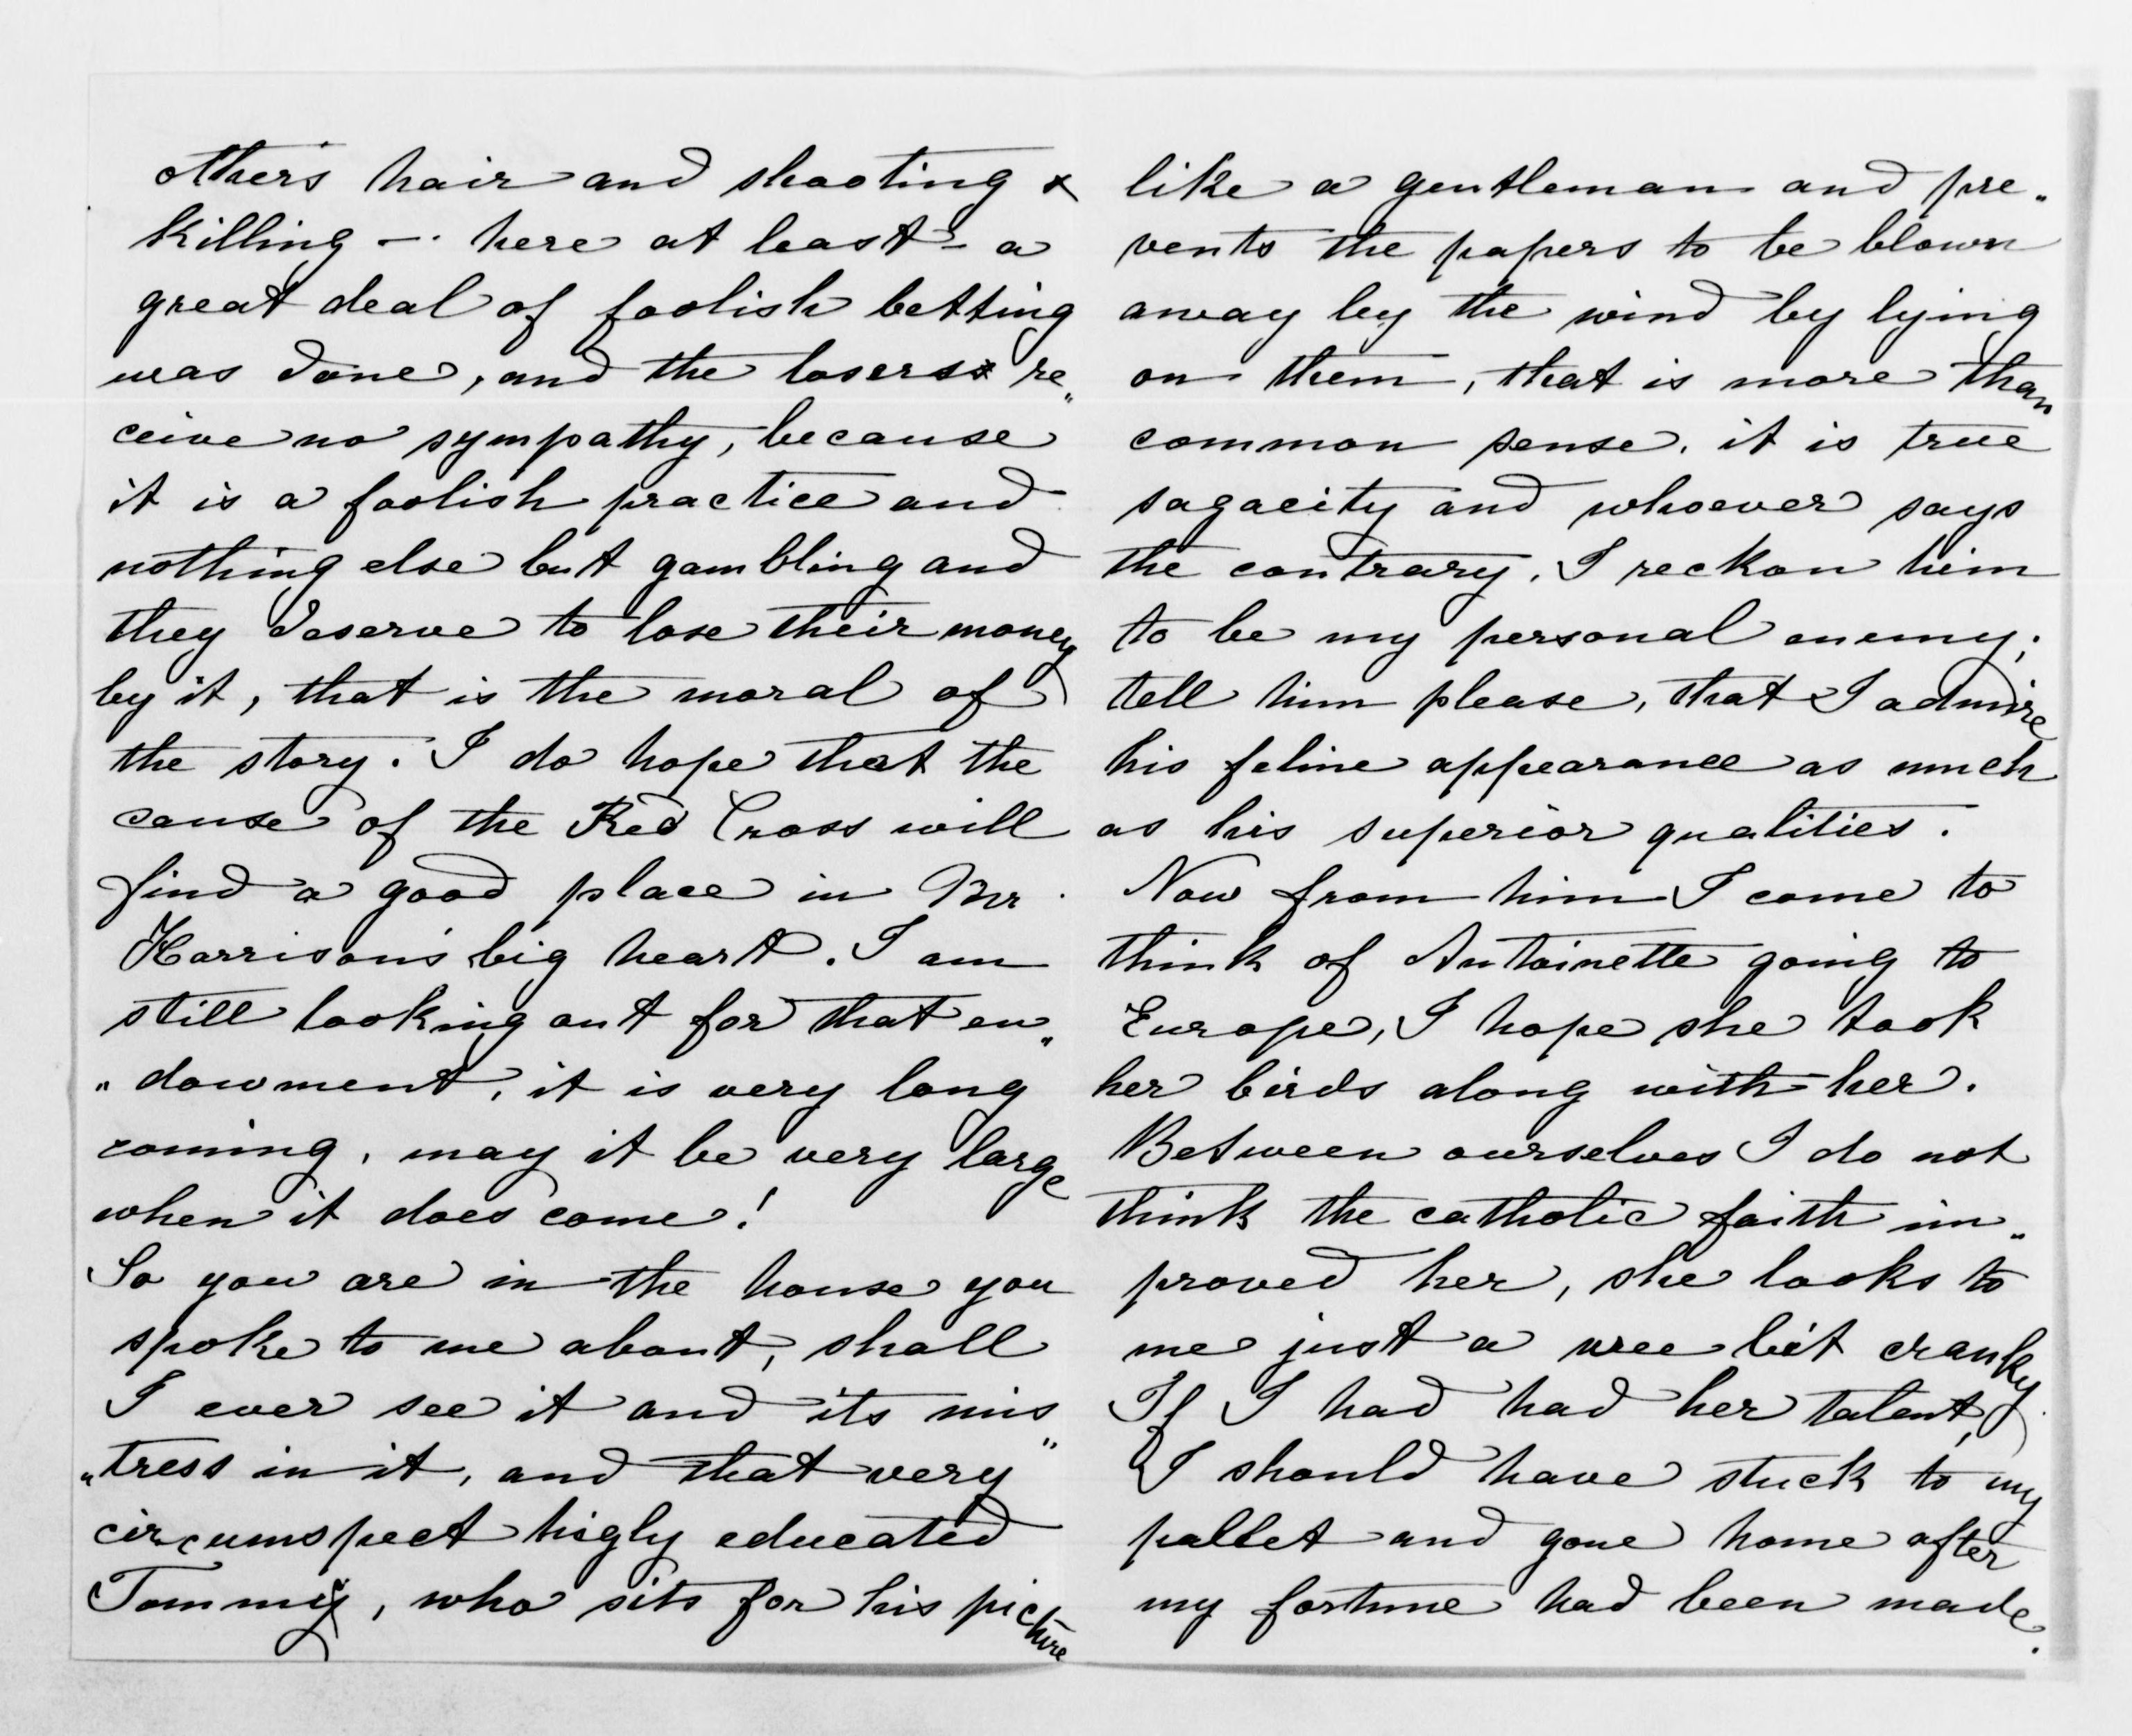 others hair and shooting &
killing — here at least a
great deal of foolish betting
was done, and the losers re„
ceive no sympathy, because
it is a foolish practice and
nothing else but gambling and
they deserve to lose their money
by it, that is the moral of
the story. I do hope that the
cause of the Red Cross will
find a good place in Mr.
Harrison's big heart. I am
still looking out for that en„
„dowment, it is very long
coming, may it be very large
when it does come!
So you are in the house you
spoke to me about, shall
I ever see it and its mis„
„tress in it, and that very
circumspect higly educated
Tommy, who sits for his picture
like a gentleman and pre„
vents the papers to be blown
away by the wind by lying
on them, that is more than
common sense, it is true
sagacity and whoever says
the contrary, I reckon him
to be my personal enemy;
tell him please, that I admire
his feline appearance as much
as his superior qualities.
Now from him I come to
think of Antoinette going to
Europe, I hope she took
her birds along with her.
Between ourselves I do not
think the catholic faith im„
proved her, she looks to
me just a wee bit cranky.
If I had had her talent,
I should have stuck to my
pallet and gone home after
my fortune had been made.